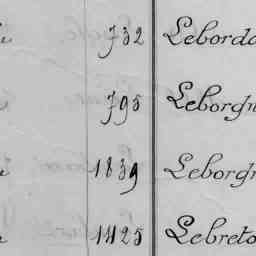 732 Leborda
795 Leborgn
1839 Leborgn
1425 Lebreto